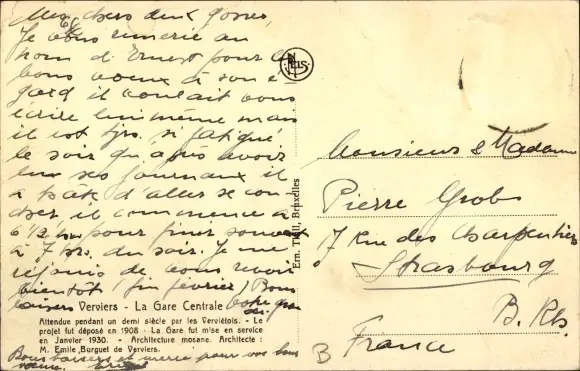 Mes chers deux gosses,
Je vous remercie au
nom d'Ernest pour les
bons voeux à son é
gard il voulait vous
écrire lui même mais
il est tjrs. si fatigué
le soir qu'après avoir
lu ses journaux il
a hâte d'aller se cou
cher, il commence à
6 1/2 hrs pour finir souvent
à 7 hrs. du soir. Je me
réjouis de vous revoir
bientôt (fin février) Bons
baisers votre
Verviers - La Gare Centrale
Attendue pendant un demi siècle par les Verviétois. - Le
projet fut déposé en 1908 - La Gare fut mise en service
en Janvier 1930. - Architecture mosane. Architecte :
M. Emile Burguet de Verviers.
Bons baisers et merci pour vos bons
voeux.
NELS
Ern. Thill, Bruxelles
Monsieur & Madame
Pierre Grobs
7 Rue des Charpentiers
Strasbourg
B. Rh.
France
B